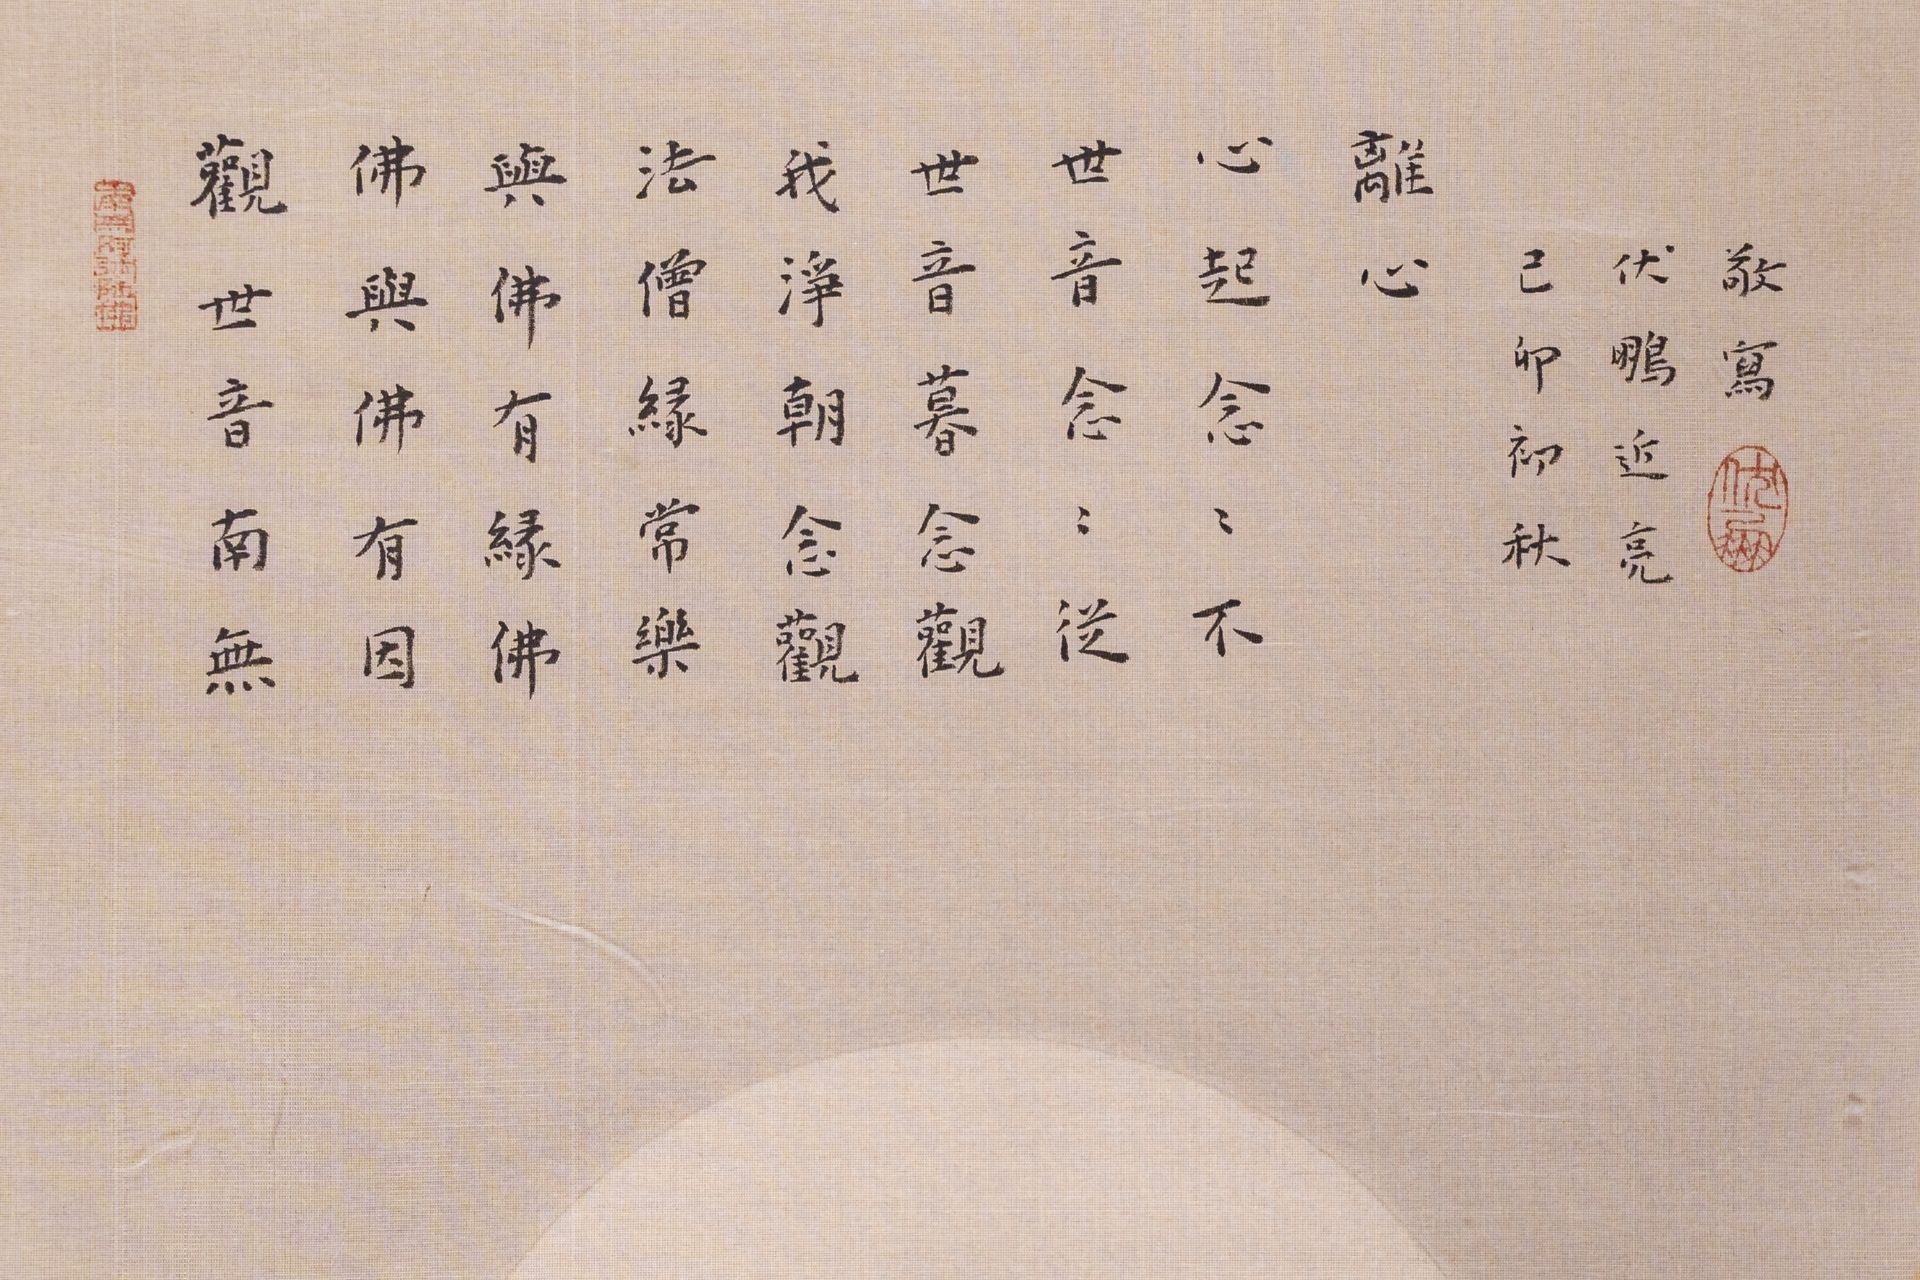 觀世音南無
佛與佛有因
與佛有縁佛
法僧縁常樂
我淨朝念觀
世音暮念觀
世音念〻從
心起念〻不
離心
己卯初秋
伏鵬近亮
敬寫